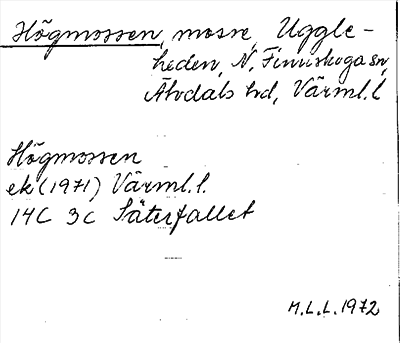 Högmossen, mosse, Uggle-
heden, N. Finnskoga sn,
Älvdals hd, Värml. l
Högmossen
ek (1971) Värml. l.
14C 3c Säterfallet
M.L.L. 1972